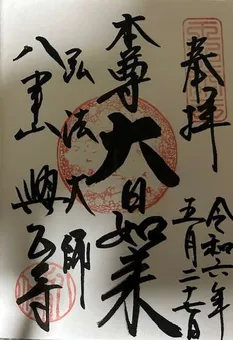 奉拝
令和六年
五月二十七日
本尊大日如来
弘法大師
八事山興正寺